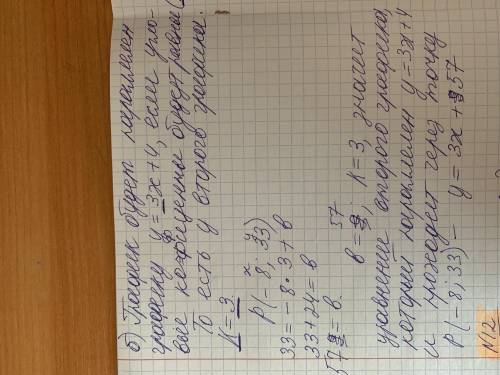 б) График будет параллелен
графику y = 3x+4, если угло-
вые коэфиценты будут равны
То есть у второго графика.
K = 3.
x y
P(-8; 33)
33 = -8 · 3 + в
33 + 24 = в
57 = в.
в = 57, К = 3, значит
уравнение второго графика,
который параллелен y = 3x + 4
и проходит через точку
P(-8; 33) - y = 3x + 57
N12